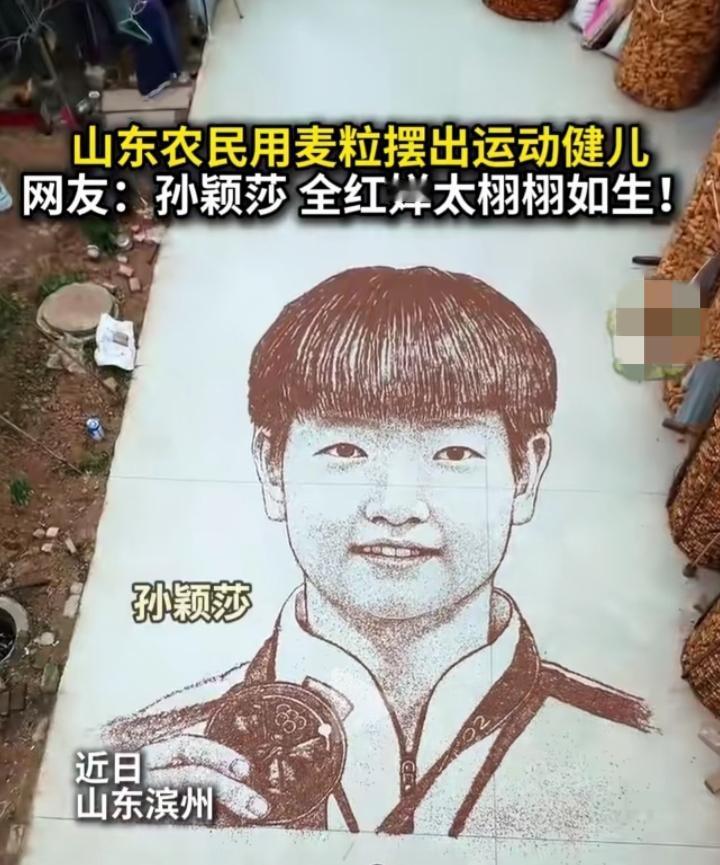 山东农民用麦粒摆出运动健儿
网友：孙颖莎 全红 太栩栩如生！
孙颖莎
近日
山东滨州